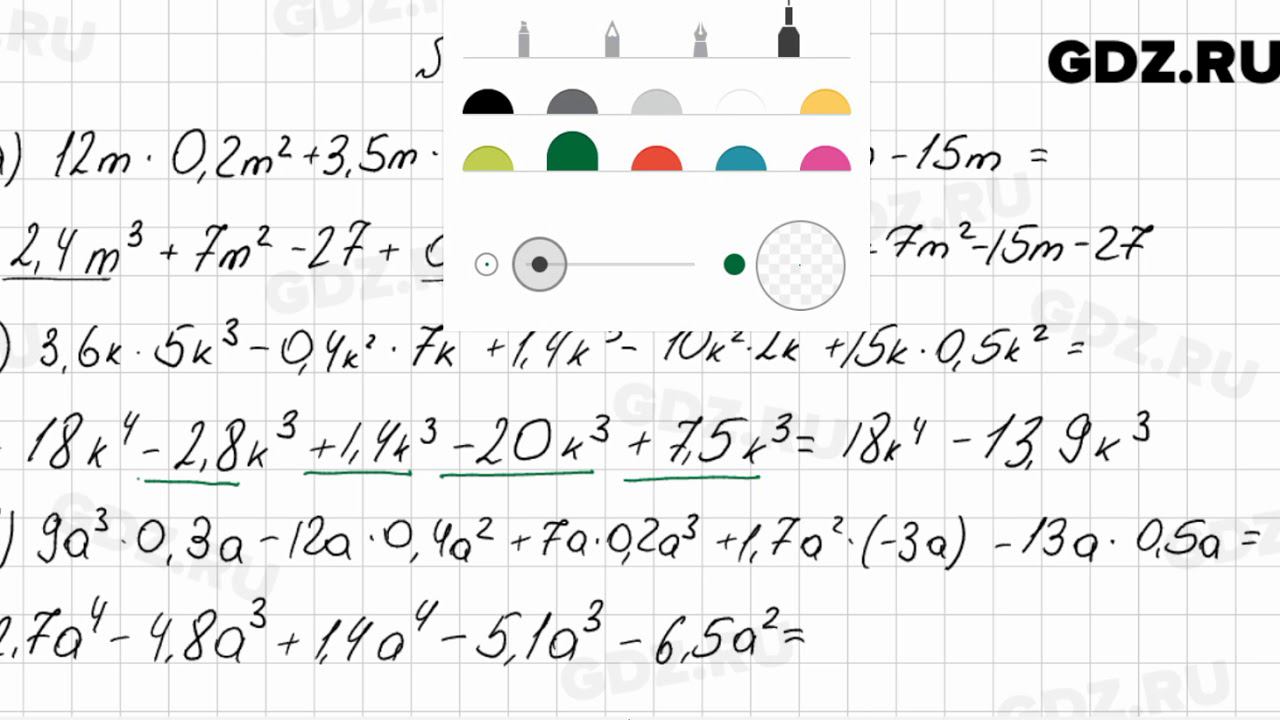 GDZ.RU
) 12m · 0,2m² + 3,5m · - 15m =
2,4m³ + 7m² - 27 + 7m² - 15m - 27
) 3,6к · 5к³ - 0,4к² · 7к + 1,4к³ - 10к² · 2к + 15к · 0,5к² =
18к⁴ - 2,8к³ + 1,4к³ - 20к³ + 7,5к³ = 18к⁴ - 13,9к³
) 9a³ · 0,3a - 12a · 0,4a² + 7a · 0,2a³ + 1,7a² · (-3a) - 13a · 0,5a =
2,7a⁴ - 4,8a³ + 1,4a⁴ - 5,1a³ - 6,5a² =